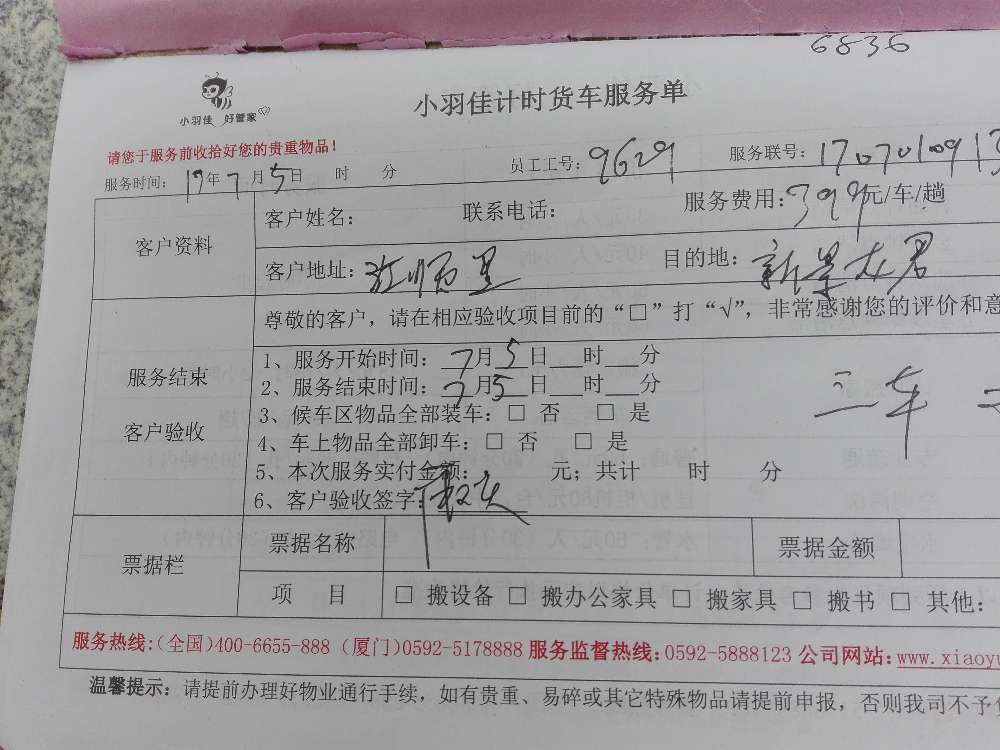 6836
小羽佳 好管家
小羽佳计时货车服务单
请您于服务前收拾好您的贵重物品！
服务时间： 17年7月5日 时 分 员工工号：9629 服务联号：1707010913
客户资料
客户姓名： 联系电话： 服务费用：399元/车/趟
客户地址： 目的地：新景龙君
尊敬的客户，请在相应验收项目前的“□”打“√”，非常感谢您的评价和意
服务结束
客户验收
1、服务开始时间：7月5日 时 分
2、服务结束时间：7月5日 时 分
三车
3、候车区物品全部装车：□ 否 □ 是
4、车上物品全部卸车：□ 否 □ 是
5、本次服务实付金额： 元；共计 时 分
6、客户验收签字：
票据栏
票据名称 票据金额
项 目 □ 搬设备 □ 搬办公家具 □ 搬家具 □ 搬书 □ 其他：
服务热线:(全国)400-6655-888 (厦门)0592-5178888 服务监督热线:0592-5888123 公司网站:www.xiaoyu
温馨提示：请提前办理好物业通行手续，如有贵重、易碎或其它特殊物品请提前申报，否则我司不予